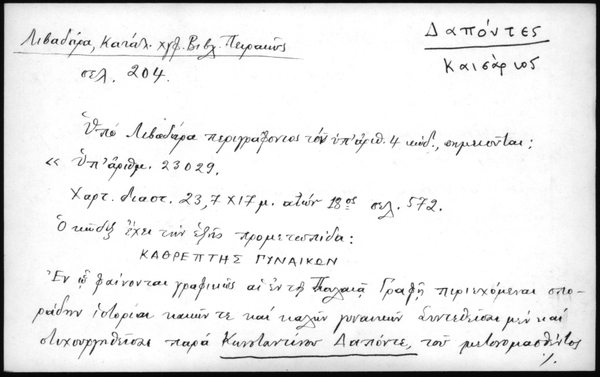 Λιβαδάρα, Κατάλ. χγφ. Βιβλ. Πειραιῶς
Δαπόντες
Καισάριος
σελ. 204.
Ὑπὸ Λιβαδάρα περιγράφοντος τὸν ὑπ' ἀριθ. 4 κώδ., σημειοῦται:
« Ὑπ' ἀριθμ. 23029.
Χαρτ. διαστ. 23,7 Χ 17 μ. αἰών 18ος σελ. 572.
Ὁ κῶδιξ ἔχει τὴν ἑξῆς προμετωπίδα:
ΚΑΘΡΕΠΤΗΣ ΓΥΝΑΙΚΩΝ
Ἐν ᾧ φαίνονται γραφικῶς αἱ ἐν τῇ Παλαιᾷ Γραφῇ περιεχόμεναι σπο-
ράδην ἱστορίαι κακῶν τε καὶ καλῶν γυναικῶν συντεθεῖσαι μὲν καὶ
στιχουργηθεῖσαι παρὰ Κωνσταντίνου Δαπόντε, τοῦ μετονομασθέντος
./.